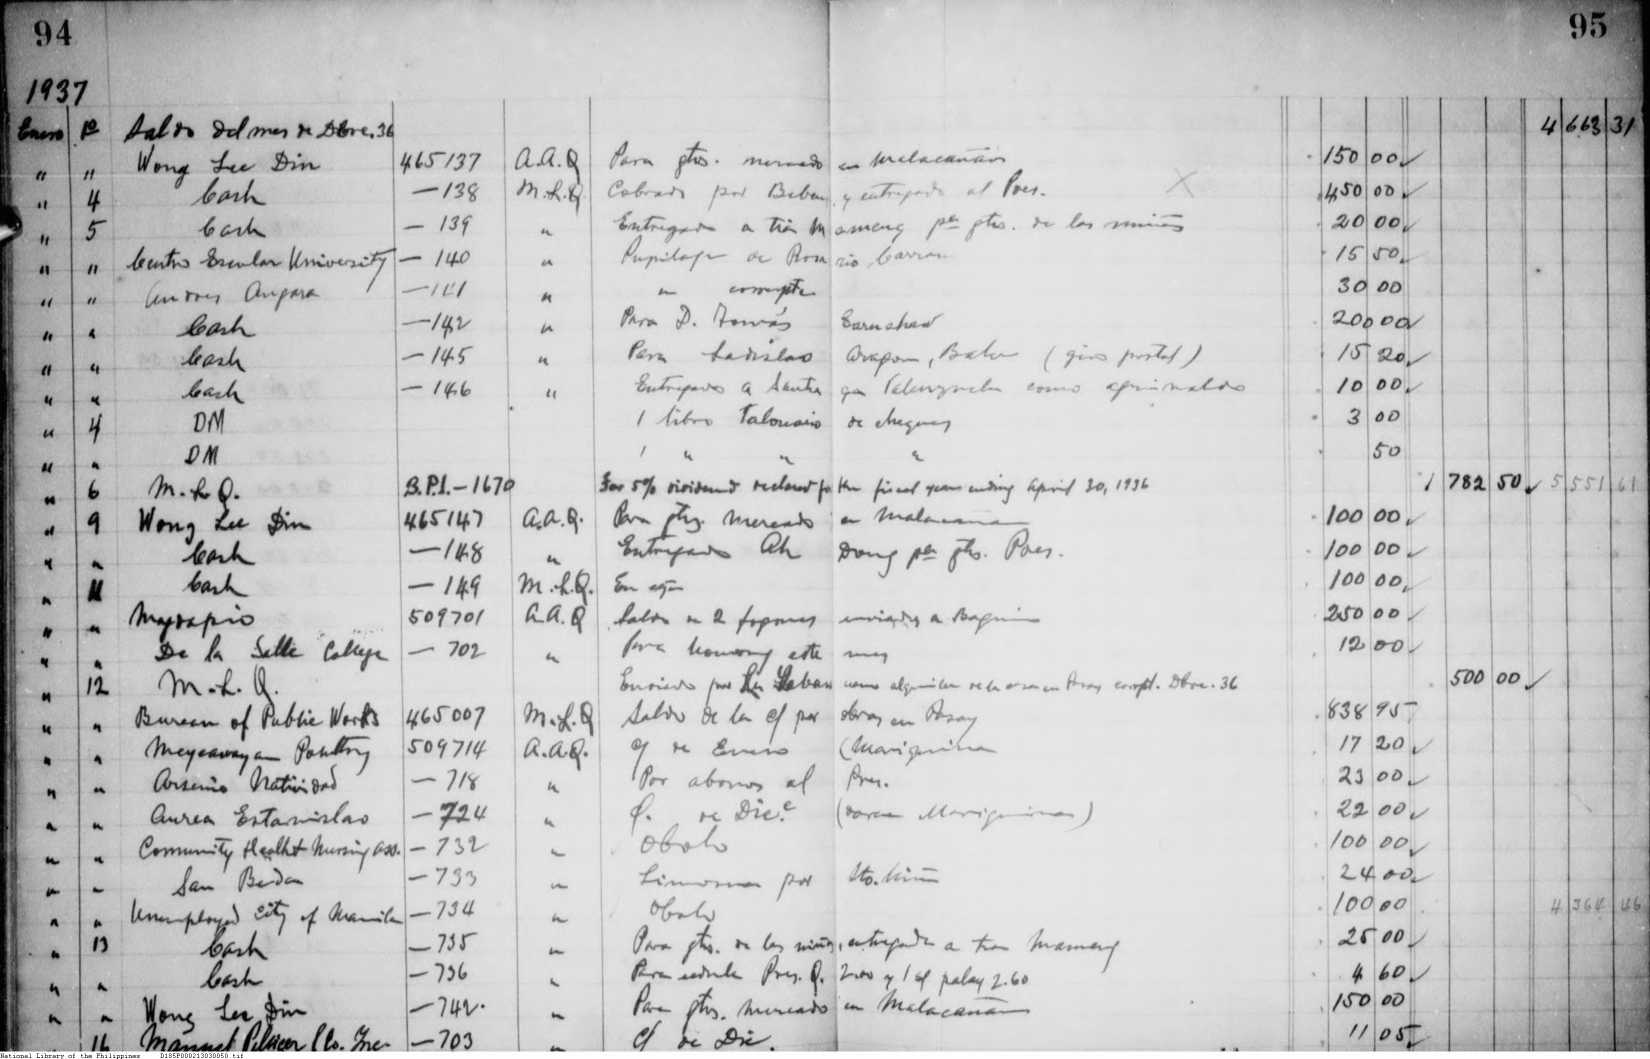 94 95
1937
Enero 1o Saldo del mes de Dbre. 36 4 663 31
" " Wong Lee Din 465137 A.A.Q Para gtos. mercado en Malacañan 150 00 ✓
" 4 Cash — 138 M.L.Q Cobrado por y entregado al Pres. X 450 00 ✓
" 5 Cash — 139 " Entregado a tia Mameng pa gtos. de las niñas 20 00 ✓
" " Centro Escolar University — 140 " Pupilaje de Rosario 15 50 ✓
" " Andres Angara — 141 " " 30 00
" " Cash — 142 " Para D. Tomás Earnshaw 200 00 ✓
" " Cash — 145 " Para Ladislao Aragon, Baler (giro postal) 15 20 ✓
" " Cash — 146 " Entregado a como aguinaldo 10 00 ✓
" 4 DM 1 libro Talonario de cheques 3 00
" " DM 1 " " " 50
" 6 M.L.Q. B.P.I. — 1670 For 5% dividend declared for the fiscal year ending April 30, 1936 1 782 50 ✓ 5 551 61
" 9 Wong Lee Din 465147 A.A.Q. Para gtos. mercado en Malacañan 100 00 ✓
" " Cash — 148 " Entregado Ah Dong pa gtos. Pres. 100 00 ✓
" 11 Cash — 149 M.L.Q. 100 00 ✓
" " Maydapio 509701 A.A.Q Saldo de 2 fogones enviados a Baguio 250 00 ✓
" " De la Salle College — 702 " Para este mes 12 00 ✓
" 12 M.L.Q. Enviado por como alquiler de la casa en Pasay corrpt. Dbre. 36 500 00 ✓
" " Bureau of Public Works 465007 M.L.Q Saldo de la c/ por obras en Pasay 838 95
" " Meycauayan Poultry 509714 A.A.Q. c/ de Enero (Mariquina 17 20 ✓
" " Arsenio Natividad — 718 " Por abonos al Pres. 23 00 ✓
" " Aurea Estanislao — 724 " de Dice. 22 00 ✓
" " Comunity Health Nursing Ass. — 732 " Obolo 100 00 ✓
" " San Beda — 733 " Limosna por Sto. Niño 24 00 ✓
" " Unemployed City of Manila — 734 " Obolo 100 00 4 364 46
" 13 Cash — 735 " Para gtos. de las niñas, entregado a tia Mameng 25 00 ✓
" " Cash — 736 " Para cedula Pres. Q. 2.00 y 1 c/ palay 2.60 4 60 ✓
" " Wong Lee Din — 742 " Para gtos. mercado en Malacañan 150 00
" 16 Manuel Pellicer Co. Inc. — 703 c/ de Dic. 11 05 ✓
National Library of the Philippines D185P000213030050.tif